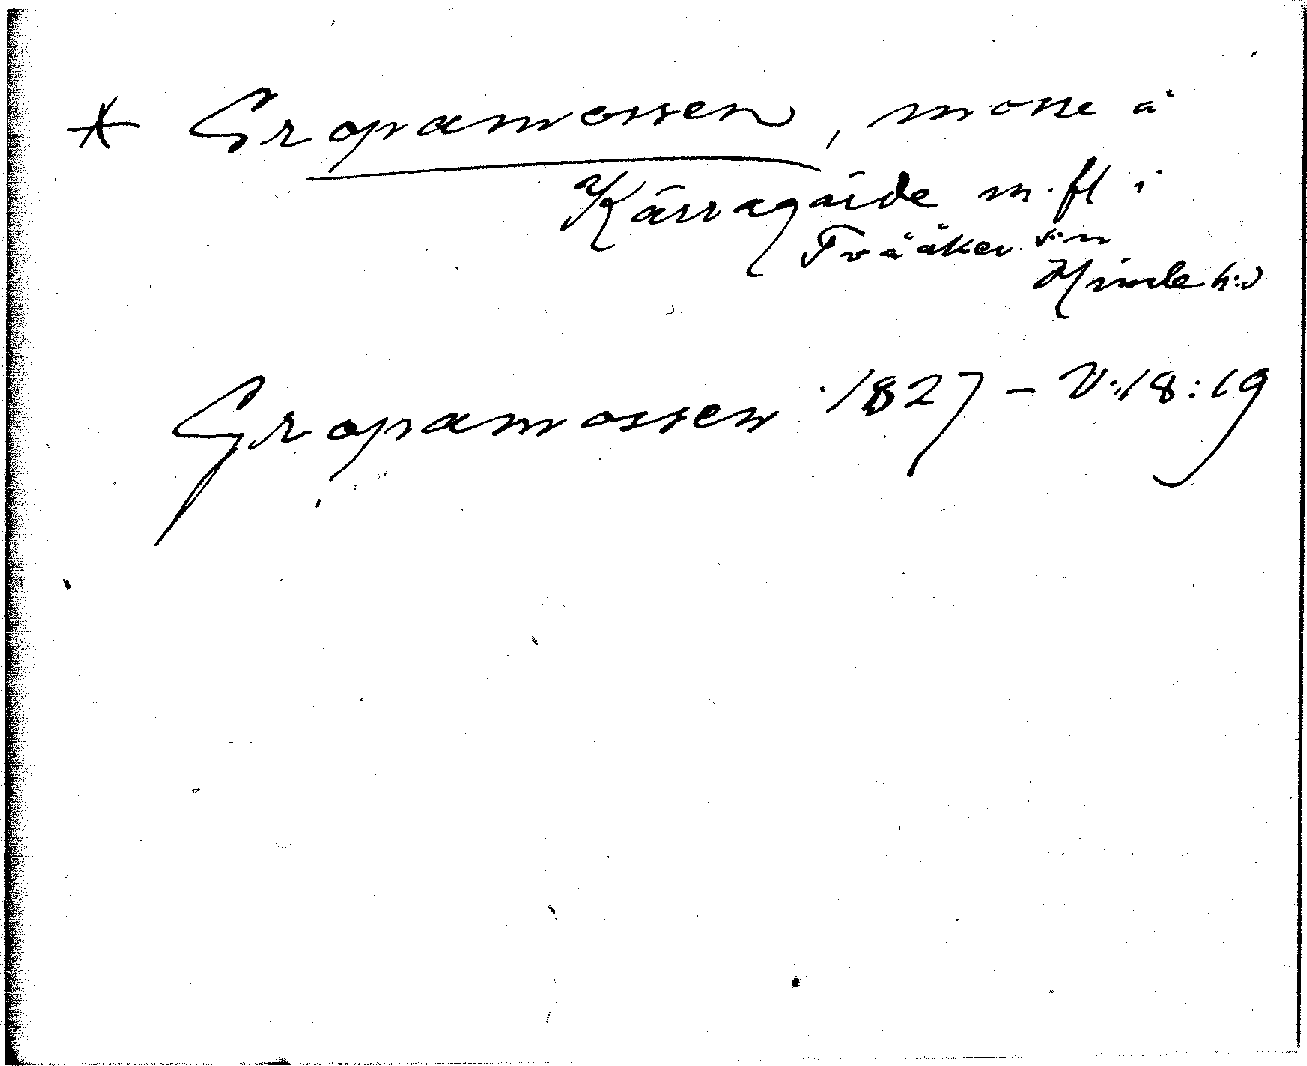 * Gropamossen, mosse å
Kärragärde m. fl i
Tvååker s:n
Himle h:d
Gropamossen 1827 – V:18:19